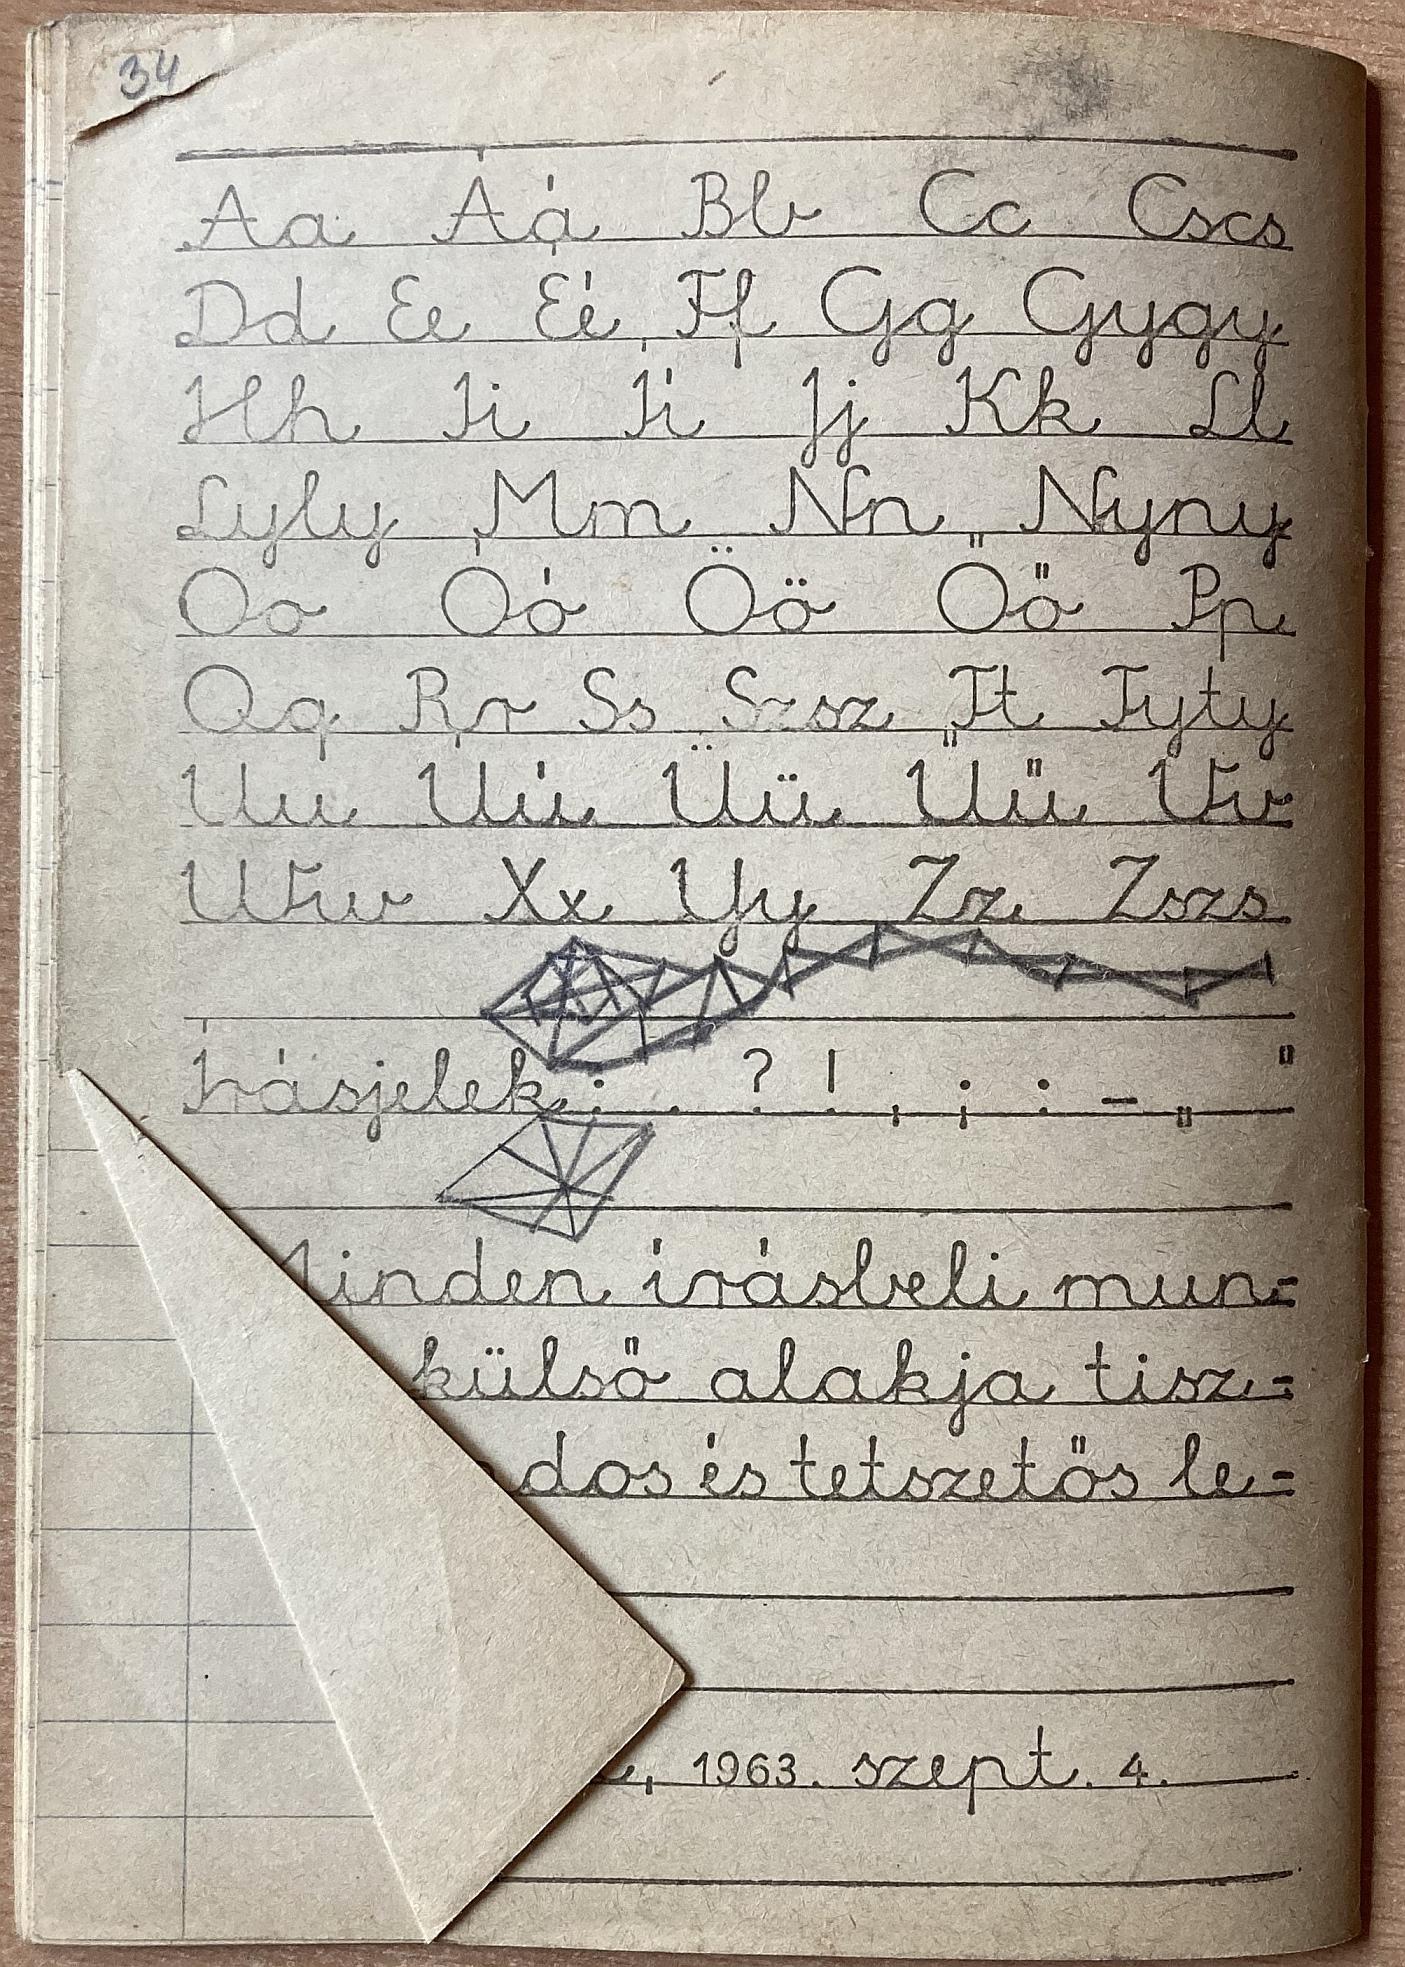 34
Aa Áá Bb Cc Cscs
Dd Ee Éé Ff Gg Gygy
Hh Ii Íí Jj Kk Ll
Lyly Mm Nn Nyny
Oo Óó Öö Őő Pp
Qq Rr Ss Szsz Tt Tyty
Uu Úú Üü Űű Vv
Ww Xx Yy Zz Zszs
Írásjelek: . ? ! , ; : – „ "
Minden írásbeli mun=
külső alakja tisz=
dos és tetszetős le=
, 1963. szept. 4.